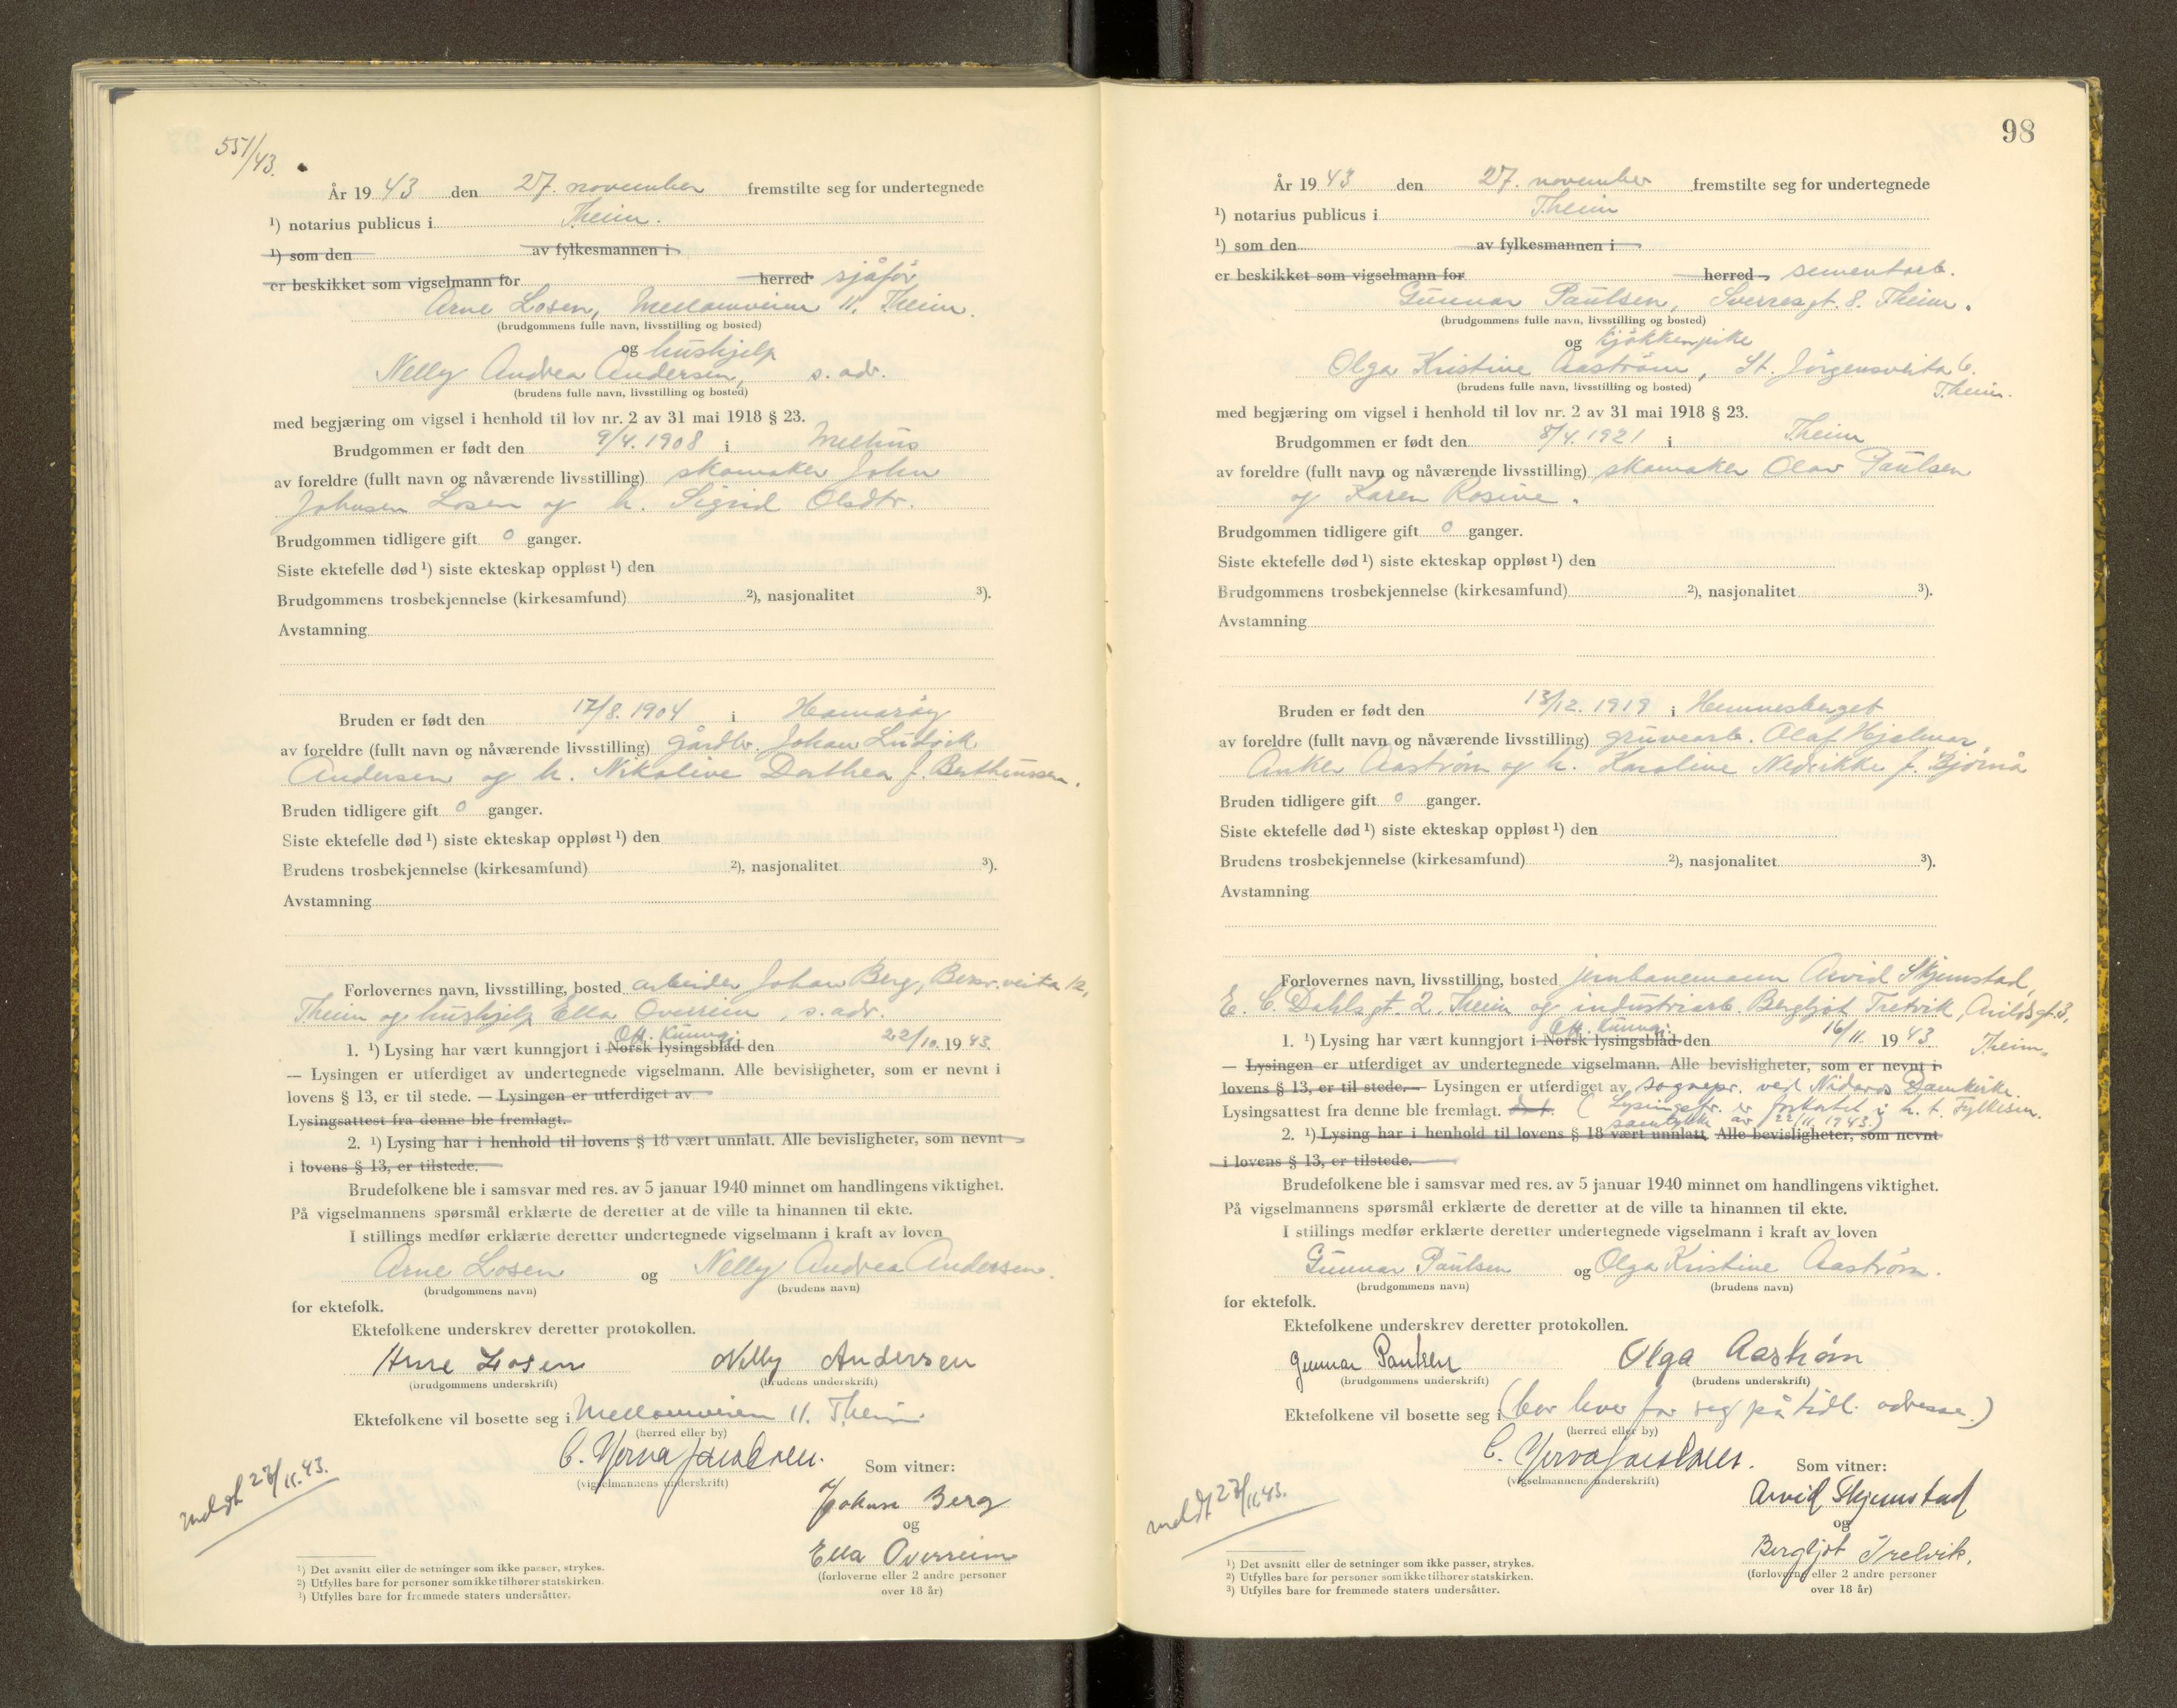 551/43.
År 1943 den 27. november fremstilte seg for undertegnede
¹) notarius publicus i Theim.
¹) som den av fylkesmannen i
er beskikket som vigselmann for herred sjåfør
Arne Losen, Mellomveien 11. Theim.
(brudgommens fulle navn, livsstilling og bosted)
og hushjelp
Nelly Andrea Andersen, s. adr.
(brudens fulle navn, livsstilling og bosted)
med begjæring om vigsel i henhold til lov nr. 2 av 31 mai 1918 § 23.
Brudgommen er født den 9/4. 1908 i Melhus
av foreldre (fullt navn og nåværende livsstilling) skomaker John
Johnsen Losen og h. Sigrid Olsdtr.
Brudgommen tidligere gift 0 ganger.
Siste ektefelle død ¹) siste ekteskap oppløst ¹) den
Brudgommens trosbekjennelse (kirkesamfund) ²), nasjonalitet ³).
Avstamning
Bruden er født den 17/8. 1904 i Hamarøy
av foreldre (fullt navn og nåværende livsstilling) gårdbr. Johan Ludvik
Andersen og h. Nikoline Dorthea f. Bertheussen.
Bruden tidligere gift 0 ganger.
Siste ektefelle død ¹) siste ekteskap oppløst ¹) den
Brudens trosbekjennelse (kirkesamfund) ²), nasjonalitet ³).
Avstamning
Forlovernes navn, livsstilling, bosted arbeider Johan Berg, veita 12,
Theim og hushjelp Ella Overrein, s. adr.
Off. kunngj.
1. ¹) Lysing har vært kunngjort i Norsk lysingsblad den 22/10. 1943.
— Lysingen er utferdiget av undertegnede vigselmann. Alle bevisligheter, som er nevnt i
lovens § 13, er til stede. — Lysingen er utferdiget av
Lysingsattest fra denne ble fremlagt.
2. ¹) Lysing har i henhold til lovens § 18 vært unnlatt. Alle bevisligheter, som nevnt
i lovens § 13, er tilstede.
Brudefolkene ble i samsvar med res. av 5 januar 1940 minnet om handlingens viktighet.
På vigselmannens spørsmål erklærte de deretter at de ville ta hinannen til ekte.
I stillings medfør erklærte deretter undertegnede vigselmann i kraft av loven
Arne Losen og Nelly Andrea Andersen.
(brudgommens navn) (brudens navn)
for ektefolk.
Ektefolkene underskrev deretter protokollen.
Arne Losen Nelly Andersen
(brudgommens underskrift) (brudens underskrift)
Ektefolkene vil bosette seg i Mellomveien 11. Theim.
(herred eller by)
(vigselmannens underskrift) Som vitner:
meldt 27/11.43.
Johan Berg
og
Ella Overrein
(forloverne eller 2 andre personer
over 18 år)
¹) Det avsnitt eller de setninger som ikke passer, strykes.
²) Utfylles bare for personer som ikke tilhører statskirken.
³) Utfylles bare for fremmede staters undersåtter.
98
År 1943 den 27. november fremstilte seg for undertegnede
¹) notarius publicus i Theim
¹) som den av fylkesmannen i
er beskikket som vigselmann for herred sementarb.
Gunnar Paulsen, Sverresgt. 8. Theim.
(brudgommens fulle navn, livsstilling og bosted)
og kjøkkenpike
Olga Kristine Aastrøm, St. Jørgensveita 6.
Theim.
(brudens fulle navn, livsstilling og bosted)
med begjæring om vigsel i henhold til lov nr. 2 av 31 mai 1918 § 23.
Brudgommen er født den 8/4. 1921 i Theim
av foreldre (fullt navn og nåværende livsstilling) skomaker Olav Paulsen
og Karen Rosine.
Brudgommen tidligere gift 0 ganger.
Siste ektefelle død ¹) siste ekteskap oppløst ¹) den
Brudgommens trosbekjennelse (kirkesamfund) ²), nasjonalitet ³).
Avstamning
Bruden er født den 13/12. 1919 i Hemnesberget
av foreldre (fullt navn og nåværende livsstilling) gruvearb. Olaf Hjalmar
Anker Aastrøm og h. Karoline Nedrikke f. Bjørnå
Bruden tidligere gift 0 ganger.
Siste ektefelle død ¹) siste ekteskap oppløst ¹) den
Brudens trosbekjennelse (kirkesamfund) ²), nasjonalitet ³).
Avstamning
Forlovernes navn, livsstilling, bosted jernbanemann Arvid Skjemstad,
E. C. Dahlsgt. 2, Theim og industriarb. Bergljot Tretvik, Arildsgt. 3,
Theim.
Off. kunngj.
1. ¹) Lysing har vært kunngjort i Norsk lysingsblad den 16/11. 1943.
— Lysingen er utferdiget av undertegnede vigselmann. Alle bevisligheter, som er nevnt i
lovens § 13, er til stede. — Lysingen er utferdiget av sognepr. ved Nidaros Domkirke.
Lysingsattest fra denne ble fremlagt. (Lysingsfr. er forkortet i h. t. Fylkesm.
samtykke av 22/11. 1943.)
2. ¹) Lysing har i henhold til lovens § 18 vært unnlatt. Alle bevisligheter, som nevnt
i lovens § 13, er tilstede.
Brudefolkene ble i samsvar med res. av 5 januar 1940 minnet om handlingens viktighet.
På vigselmannens spørsmål erklærte de deretter at de ville ta hinannen til ekte.
I stillings medfør erklærte deretter undertegnede vigselmann i kraft av loven
Gunnar Paulsen og Olga Kristine Aastrøm.
(brudgommens navn) (brudens navn)
for ektefolk.
Ektefolkene underskrev deretter protokollen.
Gunnar Paulsen Olga Aastrøm
(brudgommens underskrift) (brudens underskrift)
Ektefolkene vil bosette seg i (bor hver for seg på tidl. adresse.)
(herred eller by)
(vigselmannens underskrift) Som vitner:
meldt 27/11.43.
Arvid Skjemstad
og
Bergljot Tretvik.
(forloverne eller 2 andre personer
over 18 år)
¹) Det avsnitt eller de setninger som ikke passer, strykes.
²) Utfylles bare for personer som ikke tilhører statskirken.
³) Utfylles bare for fremmede staters undersåtter.